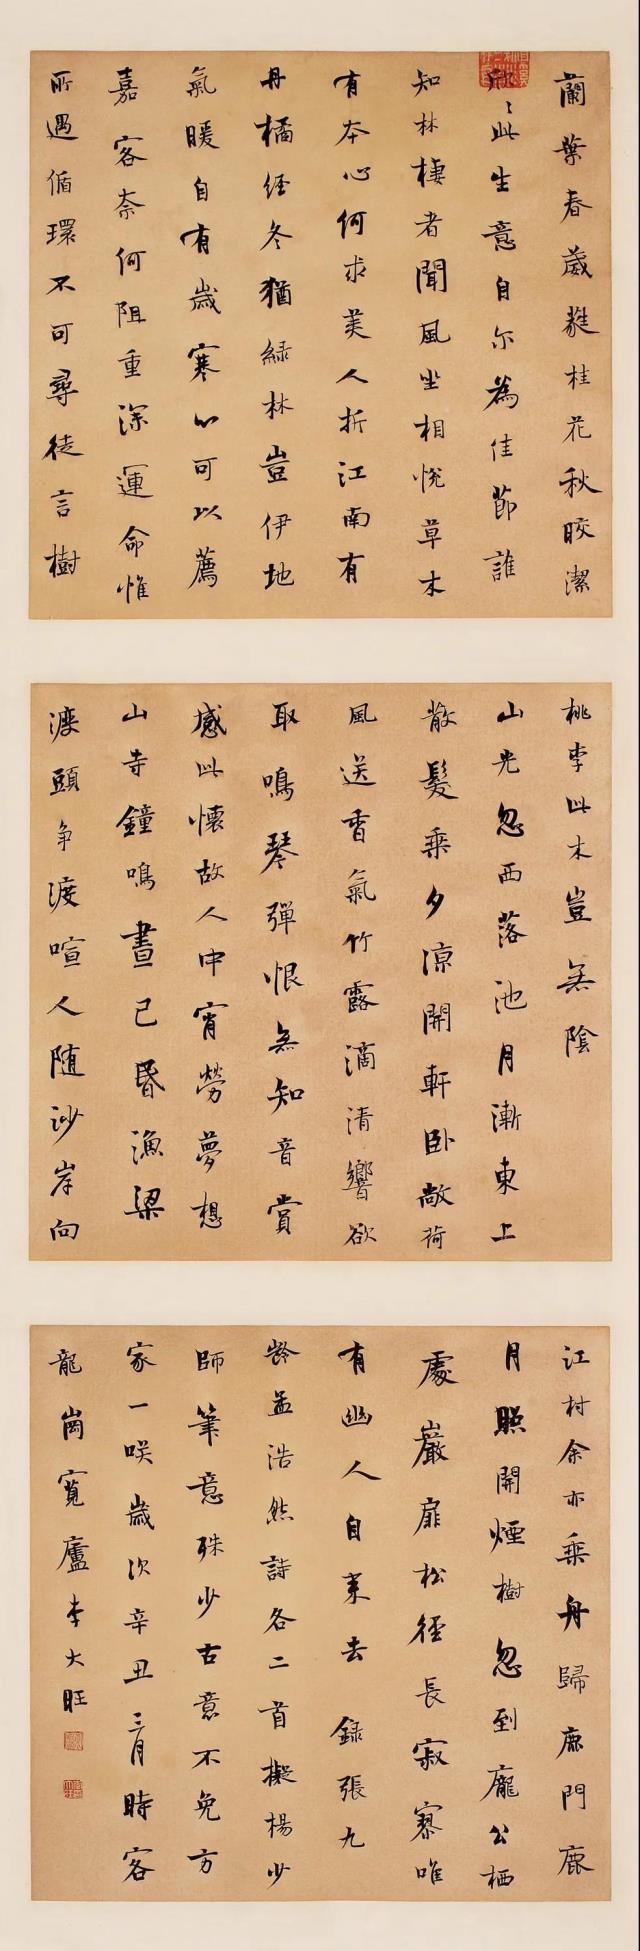 蘭葉春葳蕤桂花秋皎潔
欣〻此生意自尔為佳節誰
知林棲者聞風坐相悅草木
有本心何求美人折江南有
丹橘經冬猶綠林豈伊地
氣暖自有歲寒心可以薦
嘉客奈何阻重深運命惟
所遇循環不可尋徒言樹
桃李此木豈無陰
山光忽西落池月漸東上
散髮乘夕涼開軒臥敞荷
風送香氣竹露滴清響欲
取鳴琴彈恨無知音賞
感此懷故人中宵勞夢想
山寺鐘鳴晝已昏漁梁
渡頭争渡喧人随沙岸向
江村余亦乘舟歸鹿門鹿
月照開煙樹忽到龐公栖
處巖扉松徑長寂寥唯
有幽人自来去 録張九
齡孟浩然詩各二首擬楊少
師筆意殊少古意不免方
家一咲歲次辛丑三月時客
龍崗寬廬李大旺